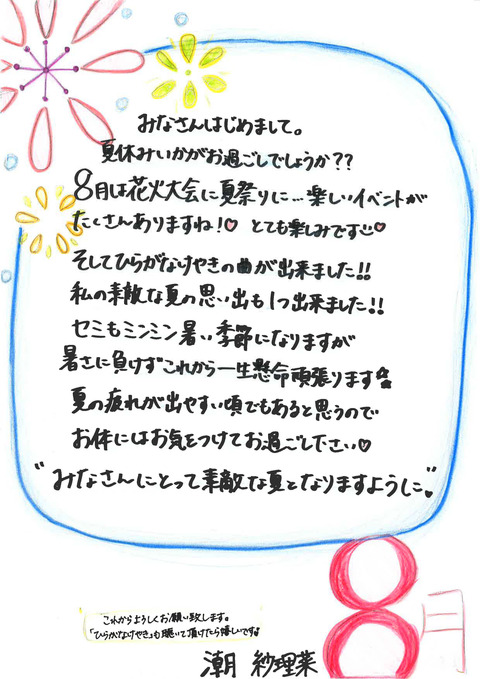 みなさんはじめまして。
夏休みいかがお過ごしでしょうか??
8月は花火大会に夏祭りに…楽しいイベントが
たくさんありますね!♡ とても楽しみです☺♡
そしてひらがなけやきの曲が出来ました!!
私の素敵な夏の思い出も1つ出来ました!!
セミもミンミン暑い季節になりますが
暑さに負けずこれから一生懸命頑張ります
夏の疲れが出やすい頃でもあると思うので
お体にはお気をつけてお過ごし下さい♡
"みなさんにとって素敵な夏となりますように♡"
8月
これからよろしくお願い致します。
「ひらがなけやき」も聴いて頂けたら嬉しいです♪
潮 紗理菜